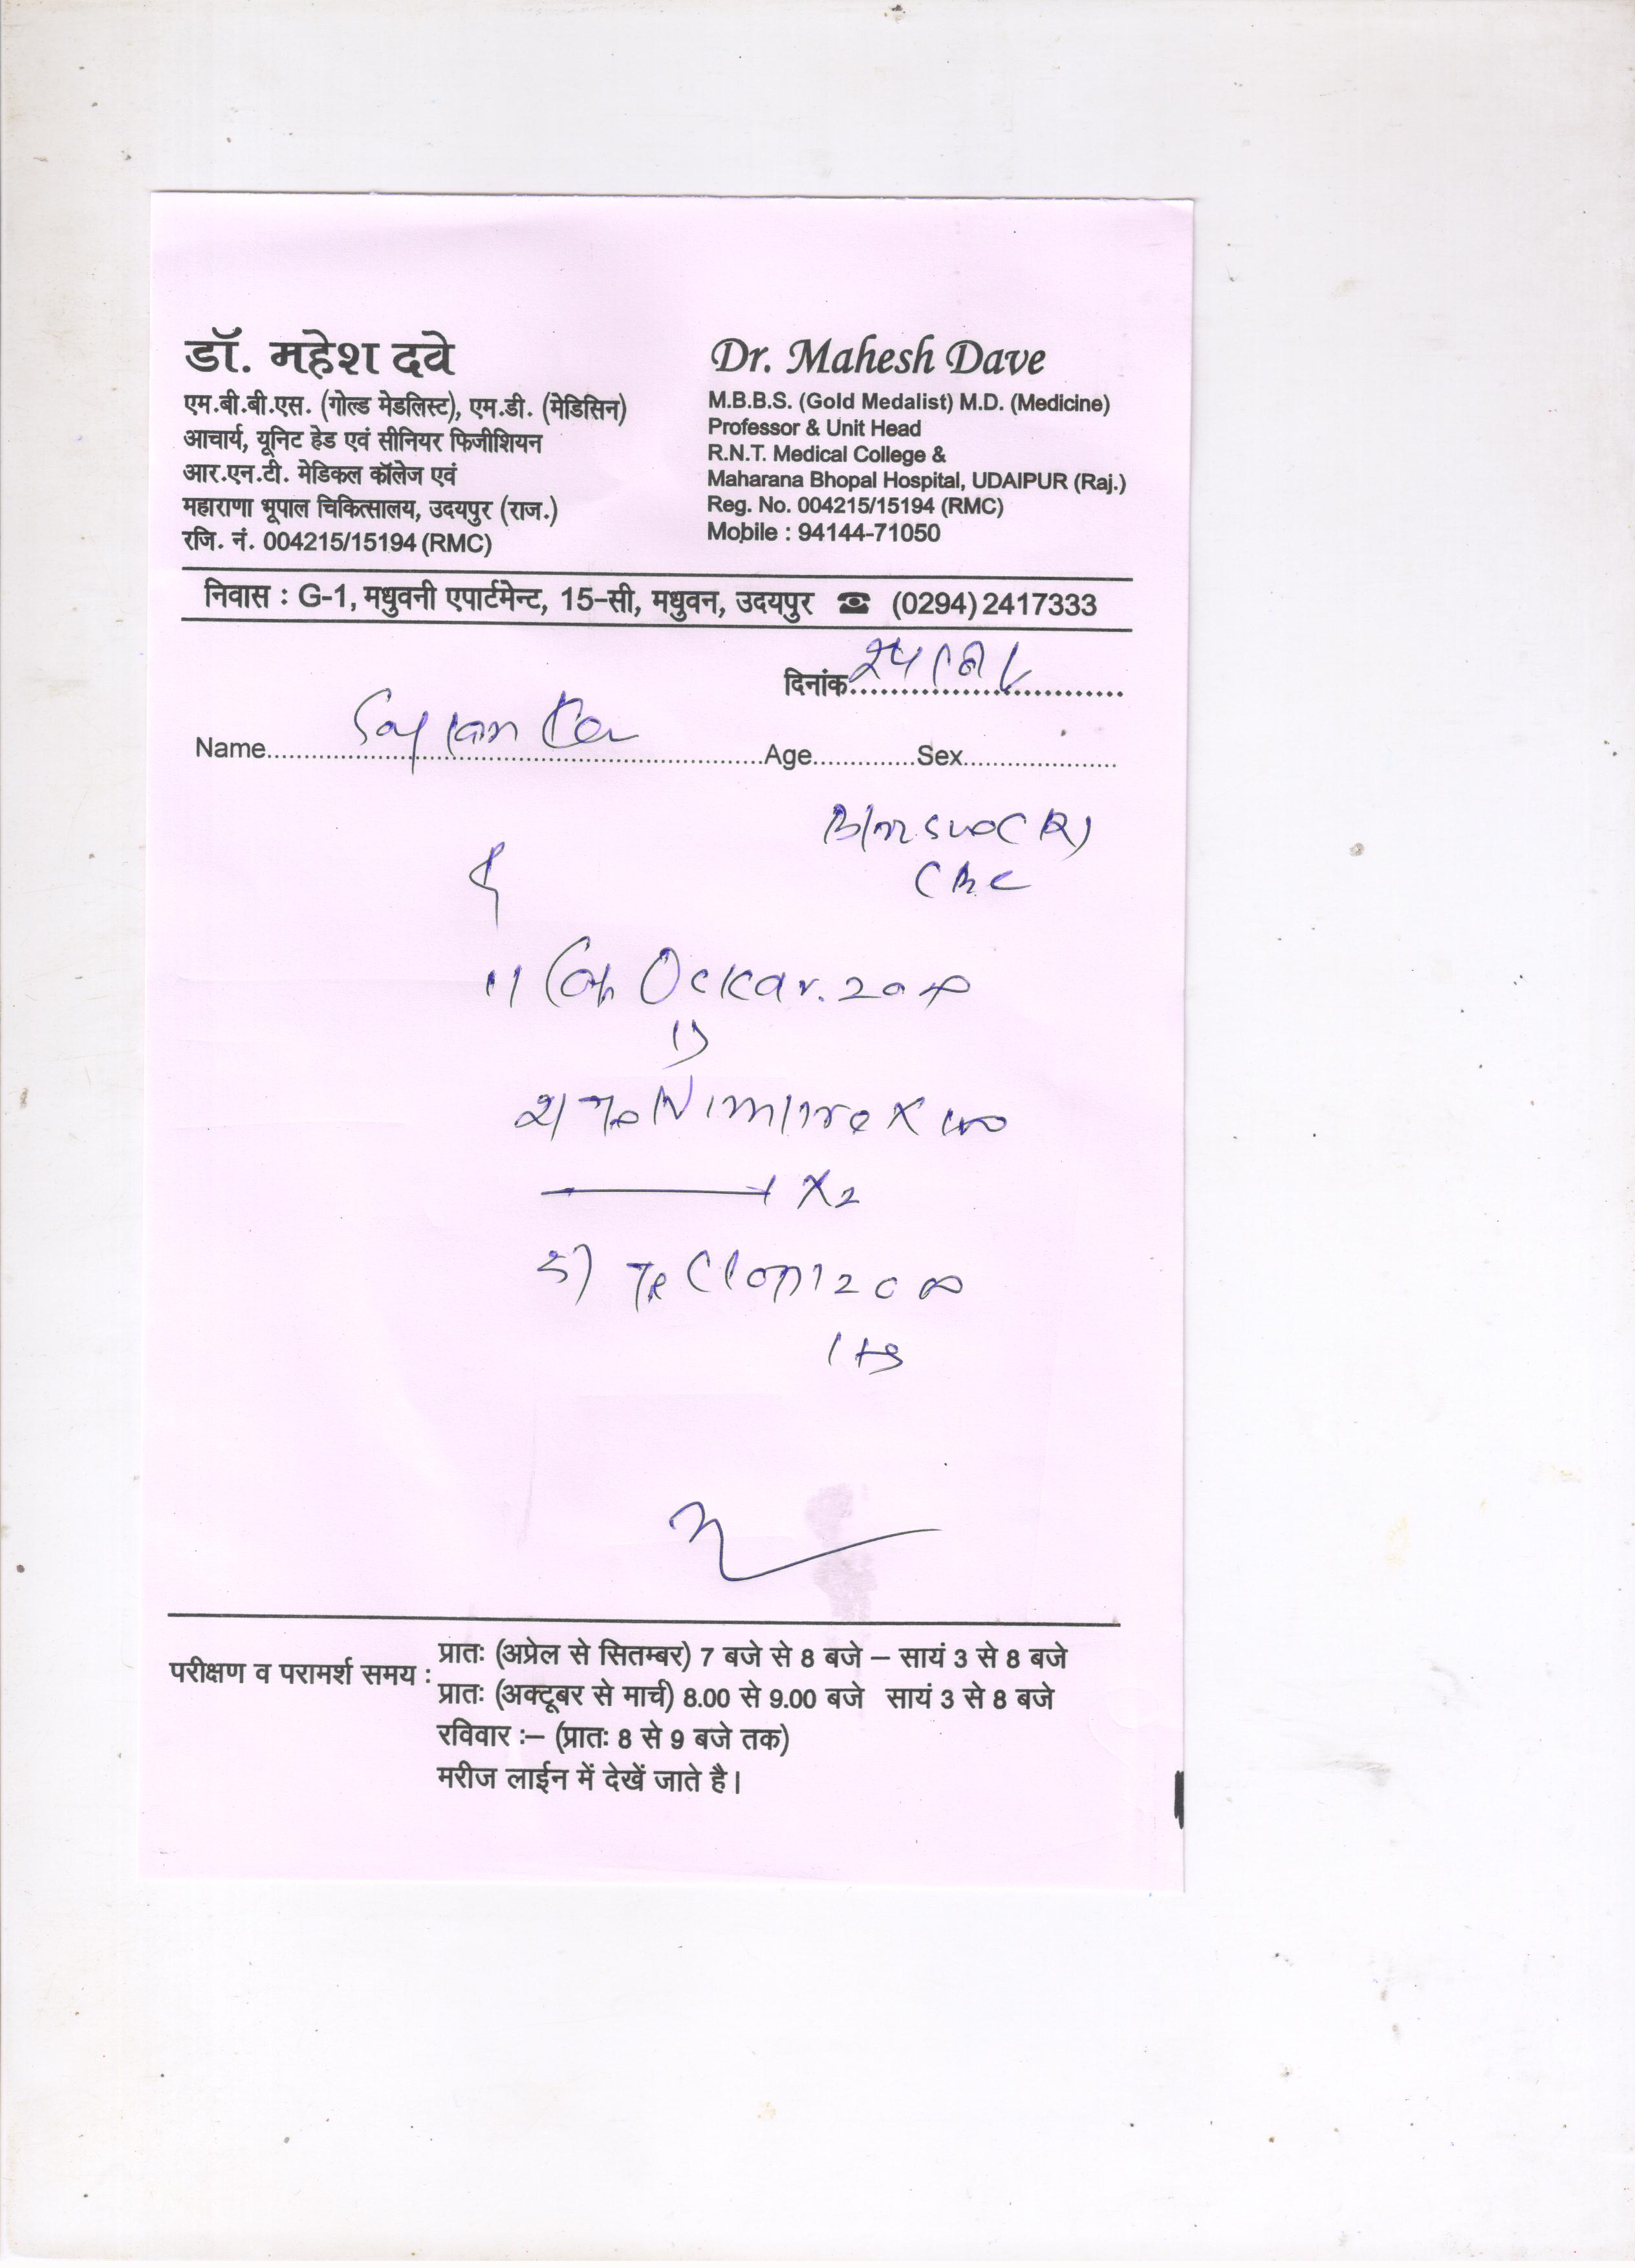 डॉ. महेश दवे
एम.बी.बी.एस. (गोल्ड मेडलिस्ट), एम.डी. (मेडिसिन)
आचार्य, यूनिट हेड एवं सीनियर फिजीशियन
आर.एन.टी. मेडिकल कॉलेज एवं
महाराणा भूपाल चिकित्सालय, उदयपुर (राज.)
रजि. नं. 004215/15194 (RMC)
Dr. Mahesh Dave
M.B.B.S. (Gold Medalist) M.D. (Medicine)
Professor & Unit Head
R.N.T. Medical College &
Maharana Bhopal Hospital, UDAIPUR (Raj.)
Reg. No. 004215/15194 (RMC)
Mobile : 94144-71050
निवास : G-1, मधुवनी एपार्टमेन्ट, 15-सी, मधुवन, उदयपुर ☎ (0294) 2417333
दिनांक
Name Age Sex
CBC
1) Cap
2)
X2
3)
परीक्षण व परामर्श समय : प्रातः (अप्रेल से सितम्बर) 7 बजे से 8 बजे – सायं 3 से 8 बजे
प्रातः (अक्टूबर से मार्च) 8.00 से 9.00 बजे सायं 3 से 8 बजे
रविवार :– (प्रातः 8 से 9 बजे तक)
मरीज लाईन में देखें जाते है।